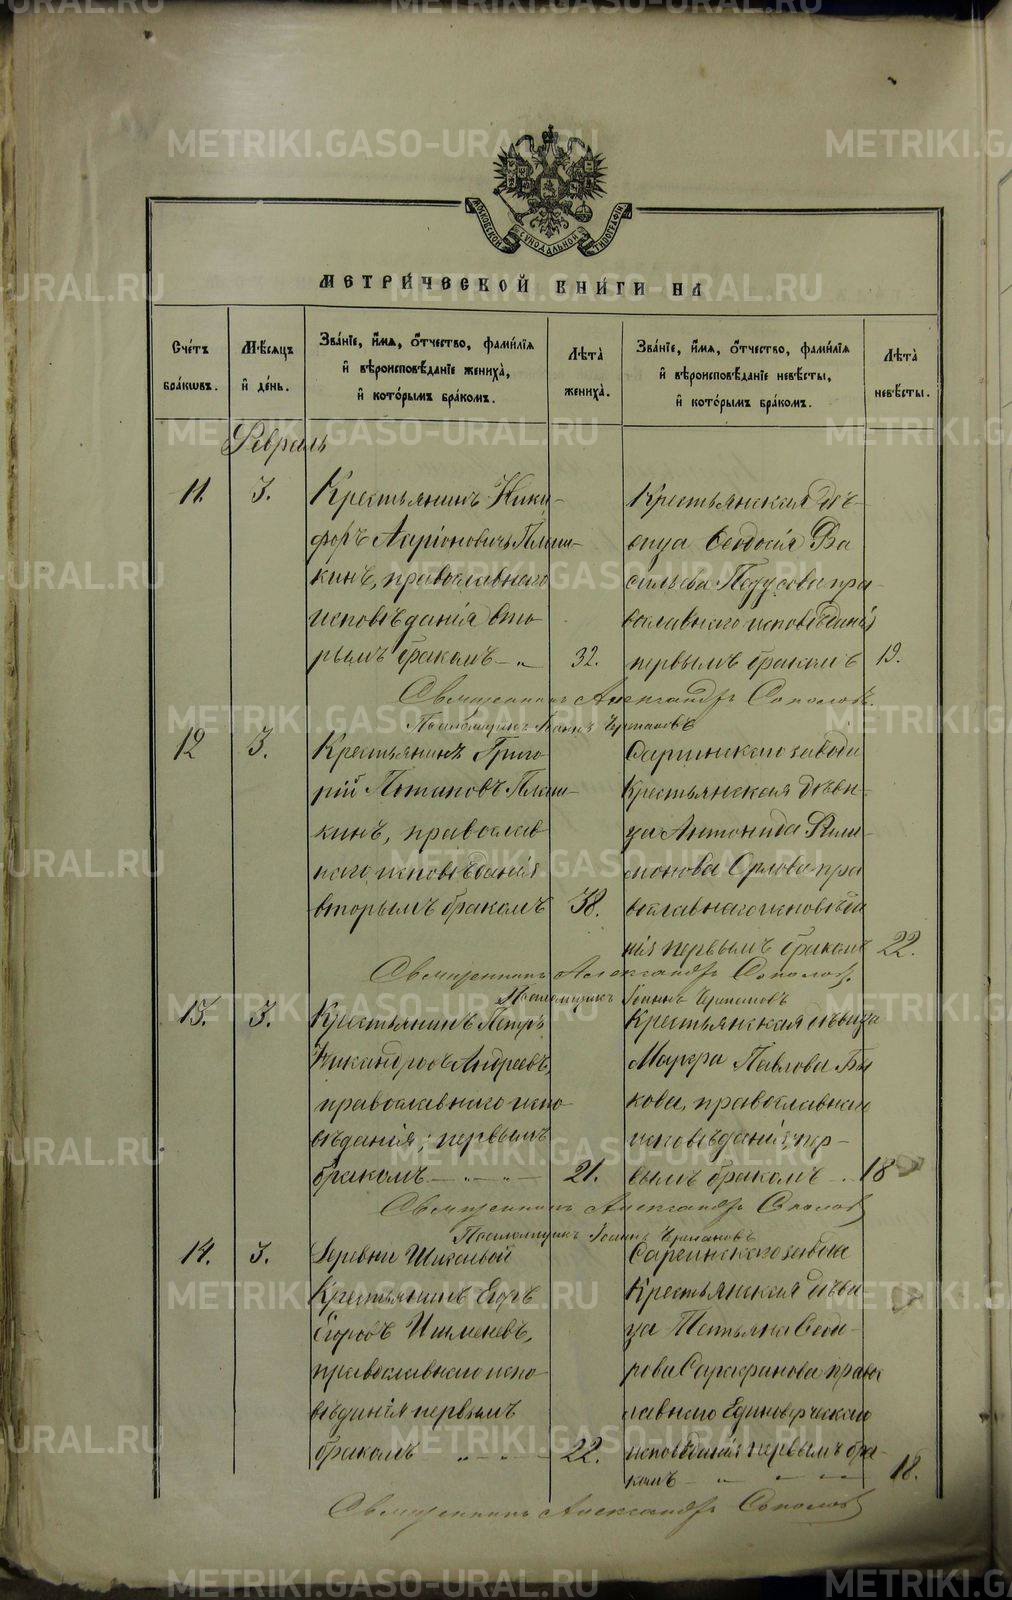 METRIKI.GASO-URAL.RU
МОСКОВСКОЙ СѴНОДАЛЬНОЙ ТИПОГРАФІИ
МЕТРИ́ЧЕСКОЙ КНИ́ГИ НА
Сче́тъ бра́кѡвъ.
Мѣ́сяцъ и҆ де́нь.
Зва́нїе, и҆́мѧ, ѻ҆́тчество, фами́лїѧ и҆ вѣроисповѣ́данїе жениха̀, и҆ кото́рымъ бра́комъ.
Лѣ́та жениха̀.
Зва́нїе, и҆́мѧ, ѻ҆́тчество, фами́лїѧ и҆ вѣроисповѣ́данїе невѣ́сты, и҆ кото́рымъ бра́комъ.
Лѣ́та невѣ́сты.
Февраль
11. 3.
Крестьянинъ Ники-
форъ Ларіоновичъ
кинъ, православнаго
исповѣданія вто
рымъ бракомъ - „ 32.
Крестьянская дѣ-
вица Ѳеодосія Ва
сильева пра-
вославнаго исповѣданія
первымъ бракомъ 19.
Священникъ Александръ Соколовъ.
Псаломщикъ Іоаннъ
12 3.
Крестьянинъ Григо
рій Потаповъ
кинъ, православ
наго исповѣданія
вторымъ бракомъ 38.
Саргинскаго завода
Крестьянская дѣви-
ца Антонида Фили-
монова Орлова пра
вославнаго исповѣда
нія первымъ бракомъ 22.
Священникъ Александръ Соколовъ.
Псаломщикъ Іоаннъ
13. 3.
Крестьянинъ Петръ
Никандровъ Андреевъ,
православнаго испо
вѣданія, первымъ
бракомъ - „ - „ - 21.
Крестьянская дѣвица
Павлова Бы
кова, православнаго
исповѣданія, пер-
вымъ бракомъ - 18
Священникъ Александръ Соколовъ
Псаломщикъ Іоаннъ
14. 3.
Деревни
Крестьянинъ Егоръ
Егоровъ
православнаго испо
вѣданія первымъ
бракомъ „ - „ - 22.
Саргинскаго завода
Крестьянская дѣви
ца Татьяна Ѳедо-
рова Сарафанова право
славнаго Единовѣрческаго
исповѣданія первымъ бра-
комъ - „ - „ - 18.
Священникъ Александръ Соколовъ